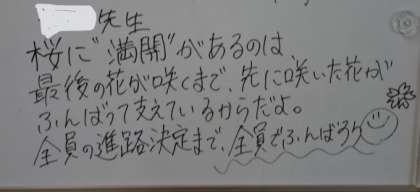 先生
桜に"満開"があるのは、
最後の花が咲くまで、先に咲いた花が
ふんばって支えているからだよ。
全員の進路決定まで、全員でふんばろう